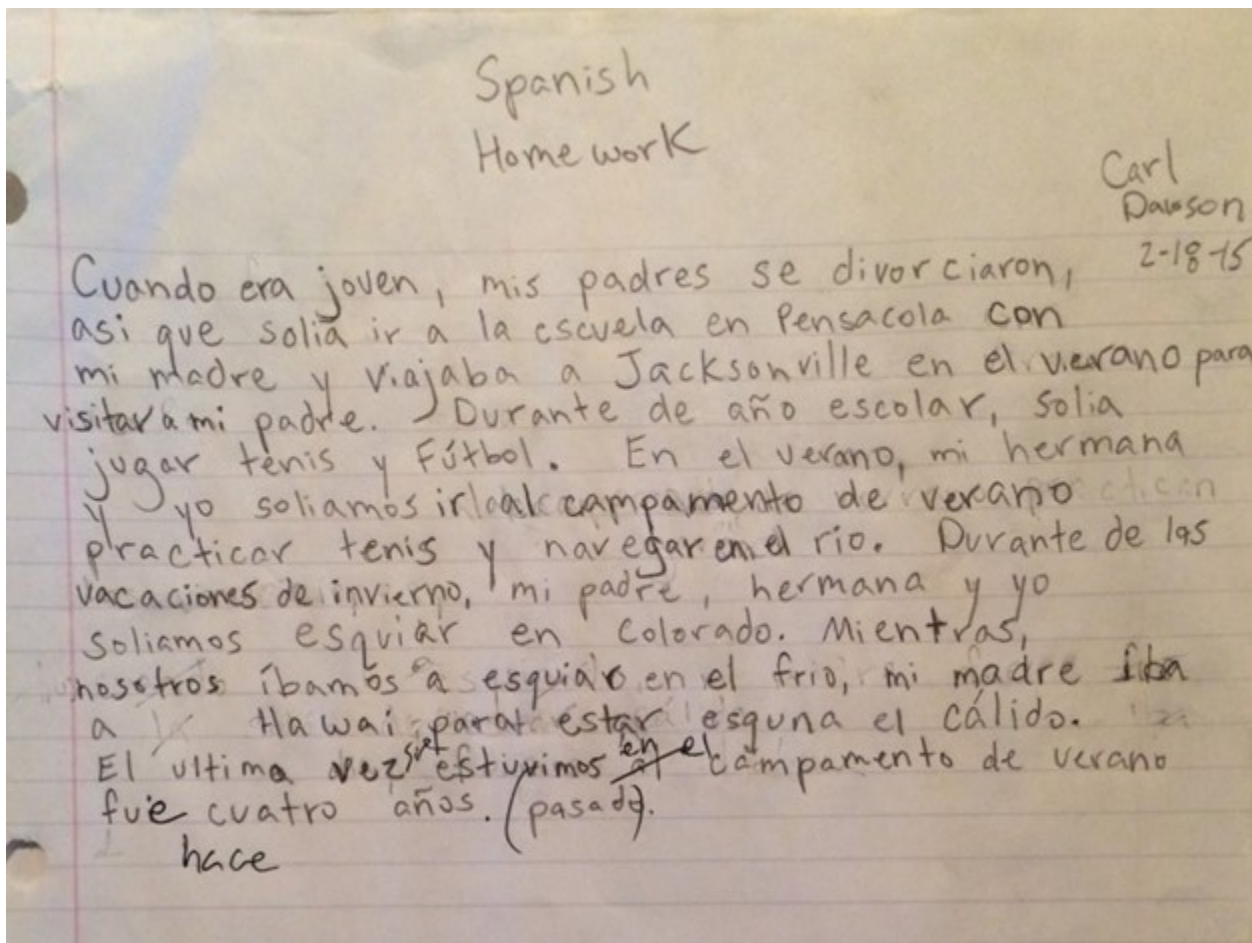 Spanish
Homework
Carl
Dawson
2-18-15
Cuando era joven, mis padres se divorciaron,
asi que solía ir a la escuela en Pensacola con
mi madre y viajaba a Jacksonville en el verano para
visitar a mi padre. Durante de año escolar, solia
jugar tenis y Fútbol. En el verano, mi hermana
y yo soliamos ir al campamento de verano
practicar tenis y navegar en el rio. Durante de las
vacaciones de invierno, mi padre, hermana y yo
soliamos esquiar en Colorado. Mientras,
nosotros íbamos a esquiar en el frio, mi madre iba
a Hawai para estar el cálido.
El ultima vez estuvimos en el campamento de verano
fue cuatro años. (pasado).
hace